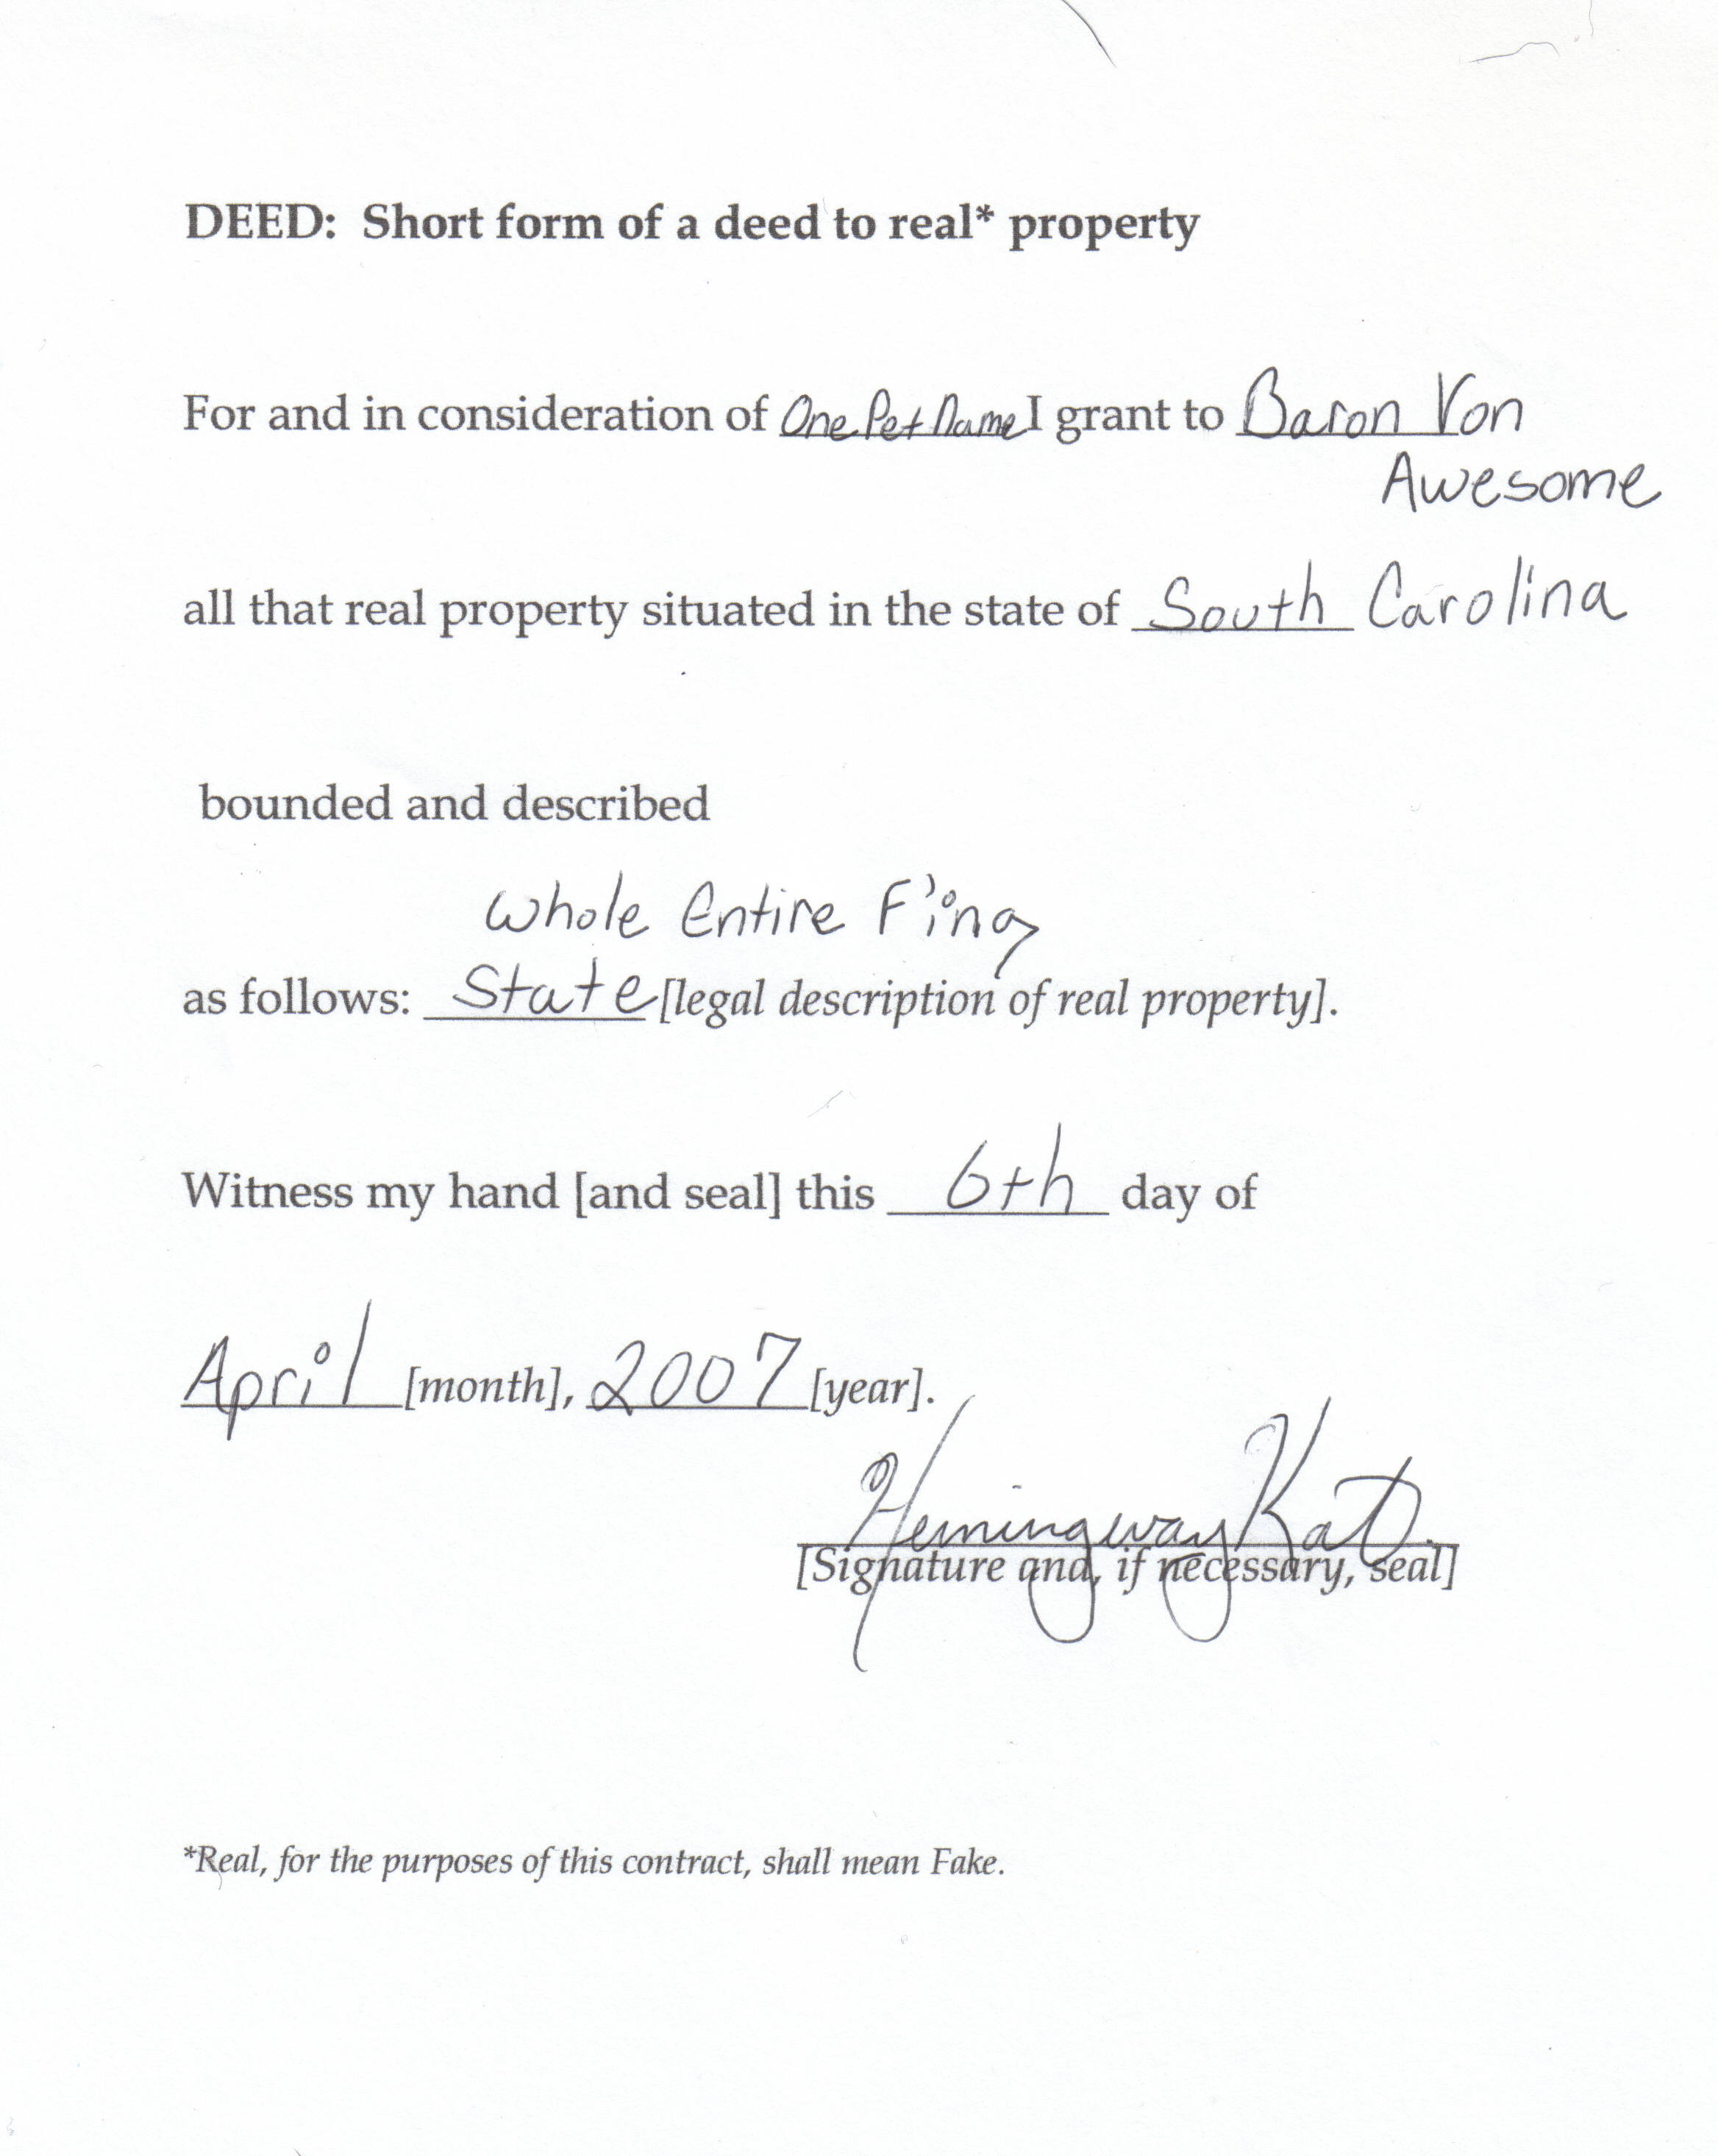 DEED: Short form of a deed to real* property
For and in consideration of One Pet Name I grant to Baron Von
Awesome
all that real property situated in the state of South Carolina
bounded and described
Whole Entire F'ing
as follows: State [legal description of real property].
Witness my hand [and seal] this 6th day of
April [month], 2007 [year].
Hemingway Kat
[Signature and, if necessary, seal]
*Real, for the purposes of this contract, shall mean Fake.